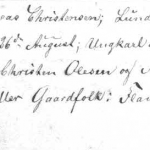 as Christensen, Lund
26de August; Ungkarl
Christen Olesen og
Gaardfolk: